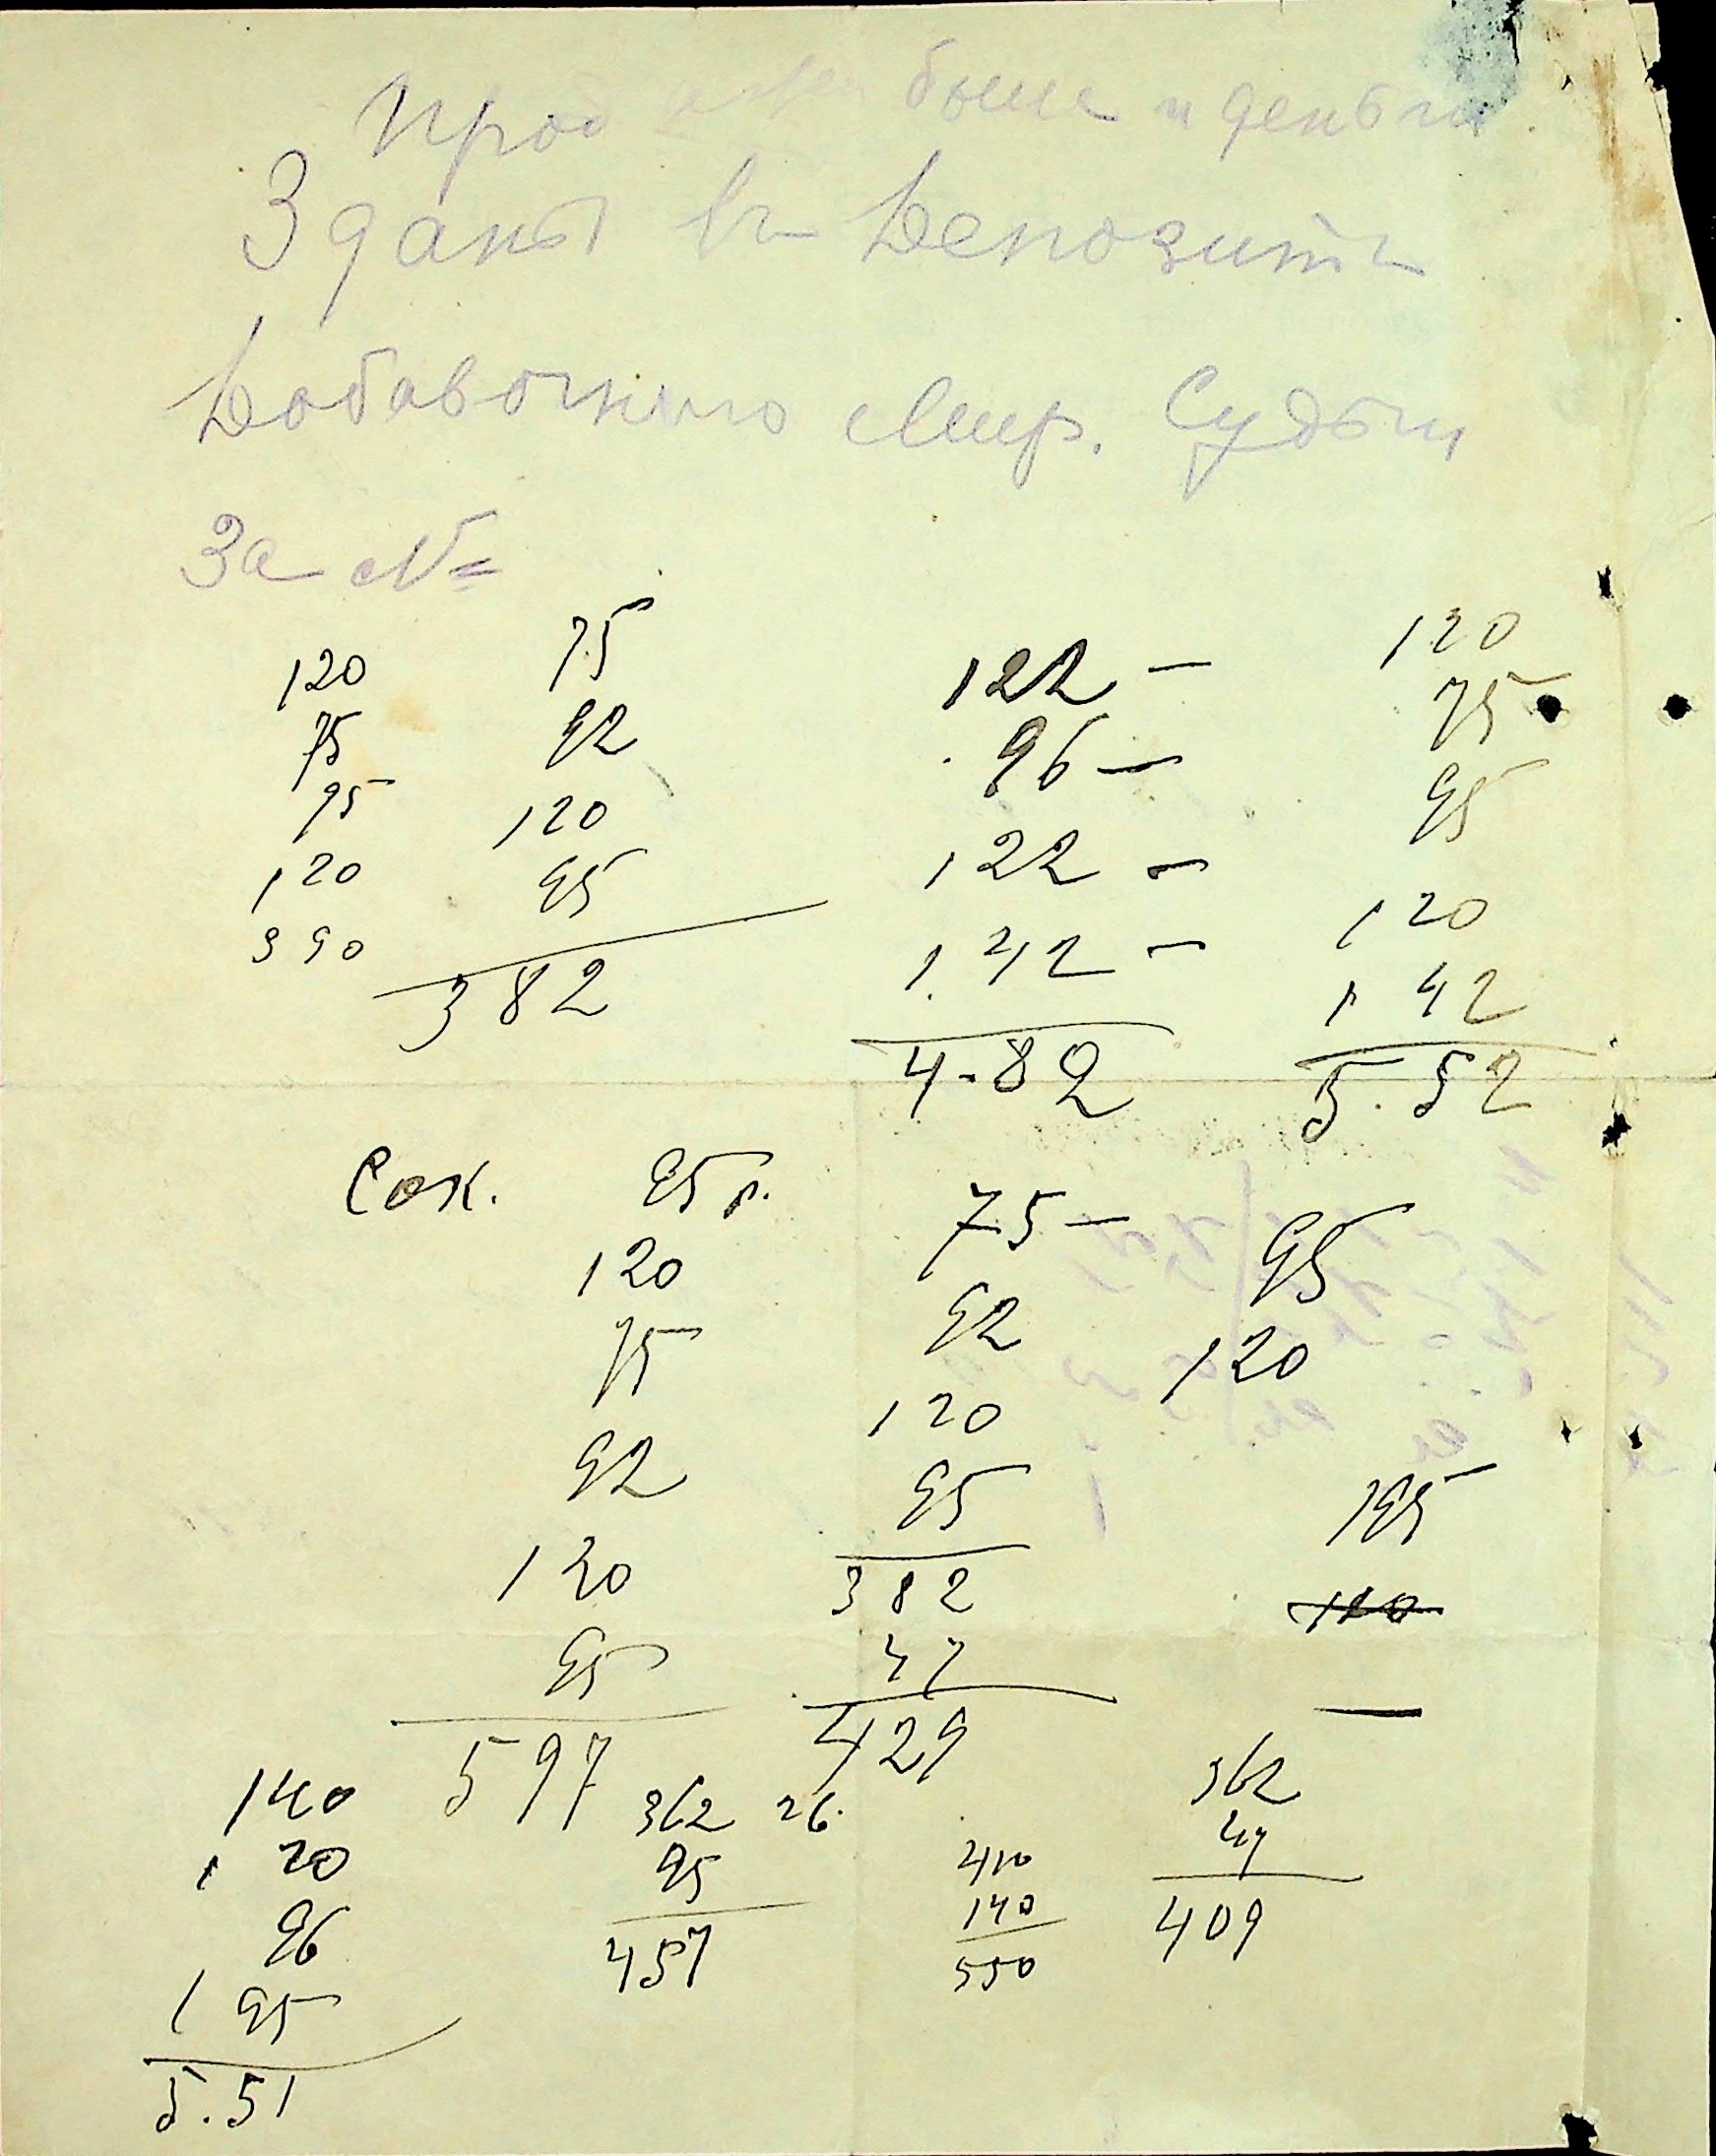 были и деньги
Зданы въ Депозитъ
Добавочнаго Мир. Судьи
За №
120
75
75
120
390
75
92
120
95
382
122 —
96 —
122 —
1.42 —
4.82
120
75
95
120
1 42
5.52
Сок. 95 р.
120
75
92
120
95
597
75 —
92
120
95
382
47
429
95
120
195
120
140
120
96
195
5.51
362 26.
95
457
410
140
550
362
47
409